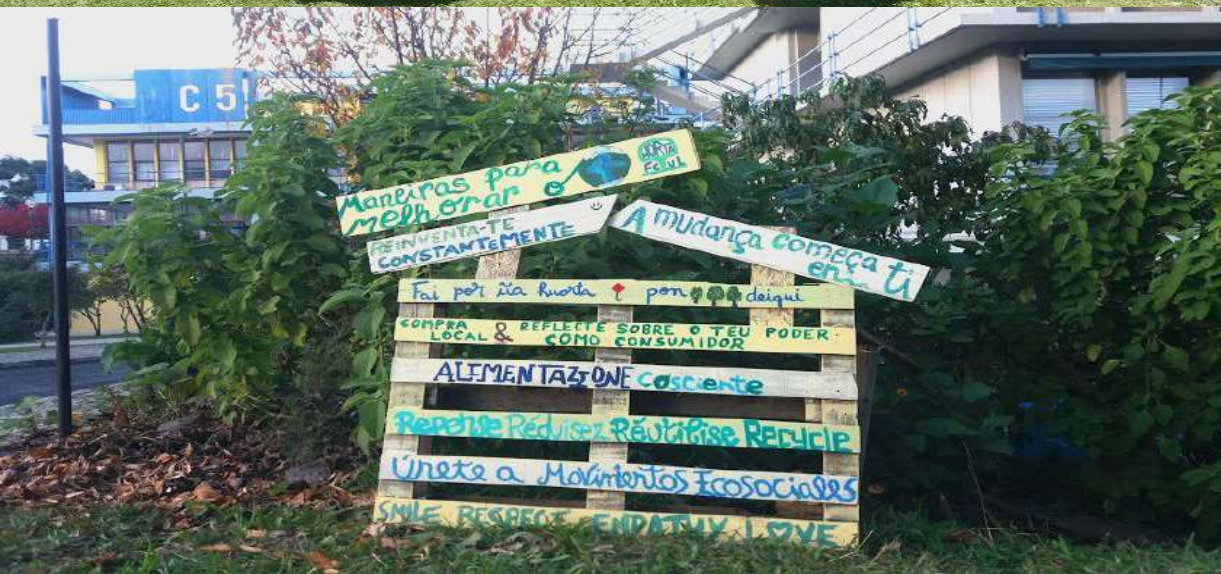 C 5
Maneiras para
melhorar o
HORTA
FCUL
REINVENTA-TE
CONSTANTEMENTE
A mudança começa
em ti
Fai por ũa huorta pon deiqui
COMPRA
LOCAL & REFLECTE SOBRE O TEU PODER
COMO CONSUMIDOR
ALIMENTAZIONE Cosciente
Repense Réduisez Réutilise Recycle
Únete a Movimientos Ecosociales
SMILE RESPECT EMPATHY LOVE